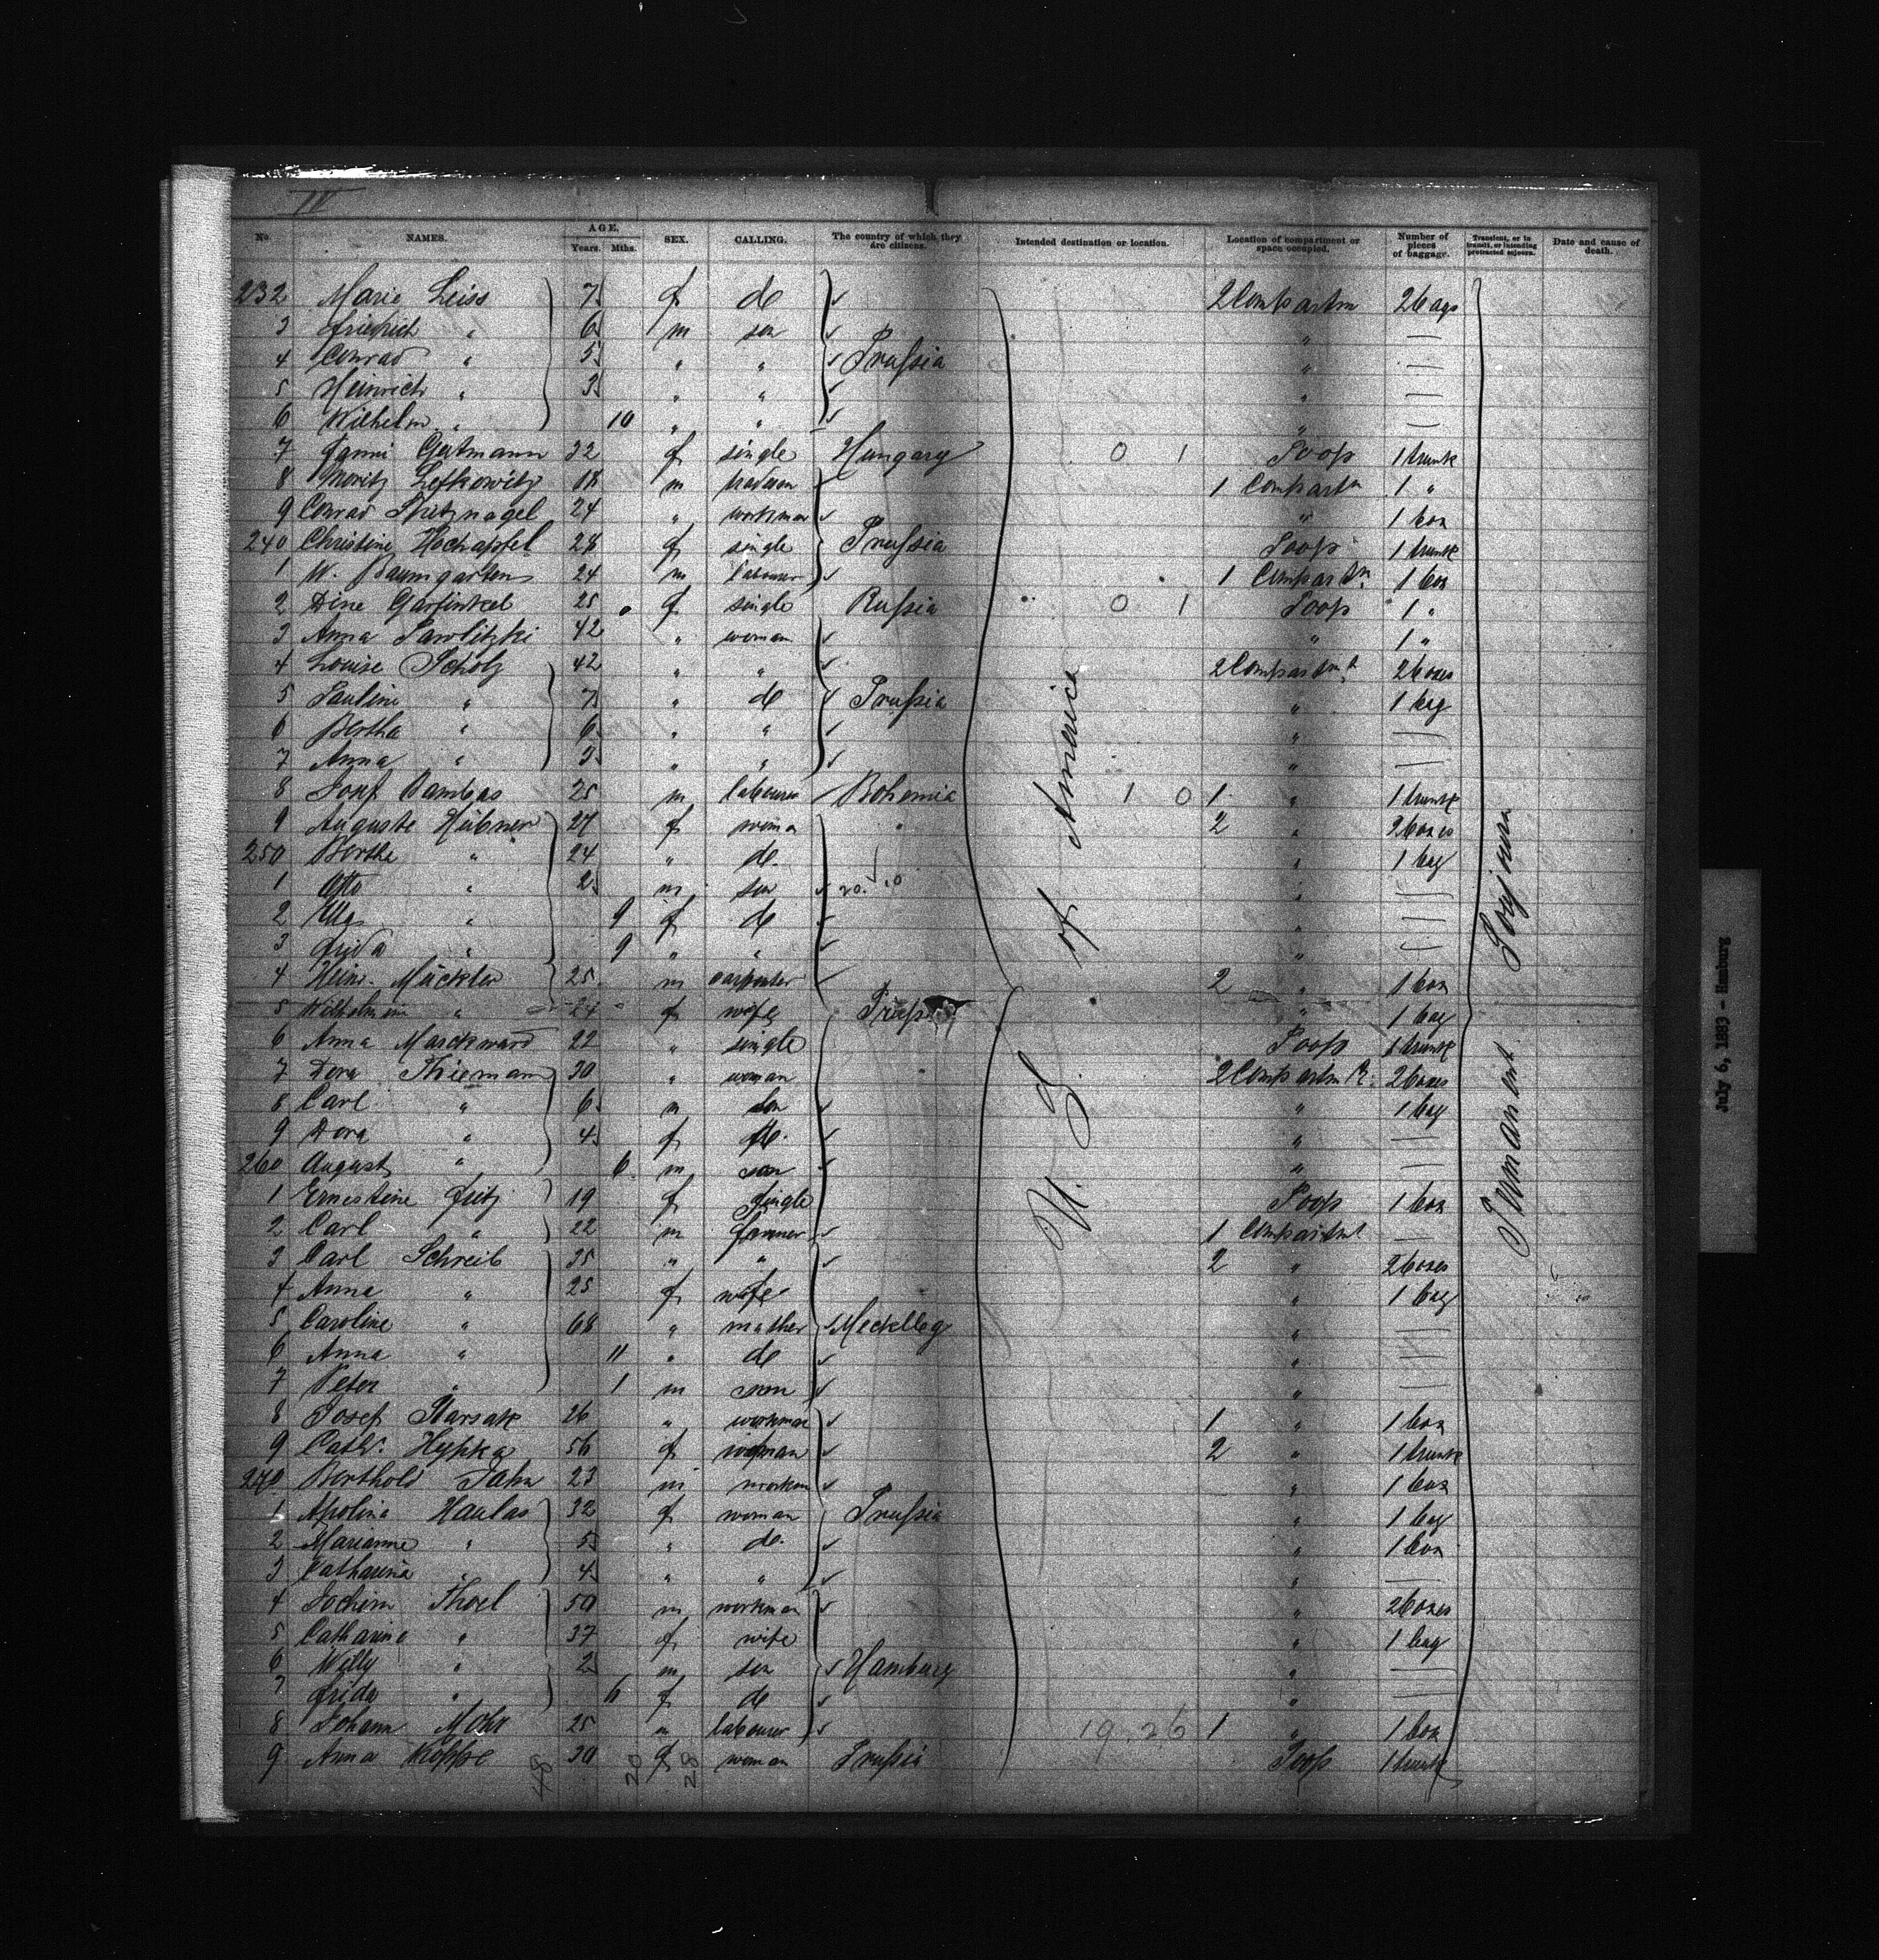 IV
No. NAMES. AGE. Years. Mths. SEX. CALLING. The country of which they are citizens. Intended destination or location. Location of compartment or space occupied. Number of pieces of baggage. Transient, or in transit, or intending protracted sojourn. Date and cause of death.
232 Marie Leiss 7 f de 2 Compartm 2 bags
3 Friedrich " 6 m son "
4 Conrad " 5 " " Prußia "
5 Heinrich " 3 " " "
6 Wilhelm " 10 " " "
7 Fanni Gutmann 22 f single Hungary 0 1 Poop 1 trunk
8 Moritz Lefkowitz 18 m tradman 1 Compartm 1 "
9 Conrad 24 " workman " 1 box
240 Christine Hochapfel 28 f single Prußia Poop 1 trunk
1 W. Baumgarten 24 m labourer 1 Compartm 1 box
2 Dine Garfinkel 25 f single Rußia 0 1 Poop 1 "
3 Anna Pawlitzki 42 " woman " 1 "
4 Louise Scholz 42 " " 2 Compartmt 2 boxes
5 Pauline " 7 " de Prußia " 1 bag
6 Bertha " 6 " " "
7 Anna " 3 " " "
8 Josef Bambas 25 m labourer Bohemia 1 0 1 " 1 trunk
9 Auguste Hübner 27 f woman " 2 " 2 boxes
250 Berthe " 24 " de " 1 bag
1 Otto " 2 m son "
2 " 9 f de "
3 Frida " 9 " " "
4 Heinr. Mückler 25 m carpenter 2 " 1 box
5 Wilhelmine " 24 f wife " 1 bag
6 Anna Marckward 22 " single Poop 1 trunk
7 Dora Thiemann 30 " woman 2 Compartmt. 2 boxes
8 Carl " 6 m son " 1 bag
9 Dora " 4 f de. "
260 August " 6 m son "
1 Ernestine Fritz 19 f single Poop 1 box
2 Carl " 22 m farmer 1 Compartmt
3 Carl Schreib 35 " " 2 " 2 boxes
4 Anna " 25 f wife " 1 bag
5 Caroline " 68 " mother Mecklbg "
6 Anna " 11 " de "
7 Peter " 1 m son "
8 Josef Starsak 26 " workman 1 " 1 box
9 Cath. Hypka 56 f woman 2 " 1 trunk
270 Berthold Jahn 23 m workm " 1 box
1 Apolina Haulas 32 f woman Prußia " 1 bag
2 Marianne " 5 " de. " 1 box
3 Catharina " 4 " " "
4 Jochim Thoel 50 m workman " 2 boxes
5 Catharine " 37 f wife " 1 bag
6 Willy " 2 m son Hamburg "
7 Frida " 6 f de "
8 Johann Mohr 25 m labourer 19.26 1 " 1 box
9 Anna Koppe 30 f woman Prußia Poop 1 trunk
48 20 28
U. S. of America
Permanent Sojourn
July 6, 1889 - Hamburg